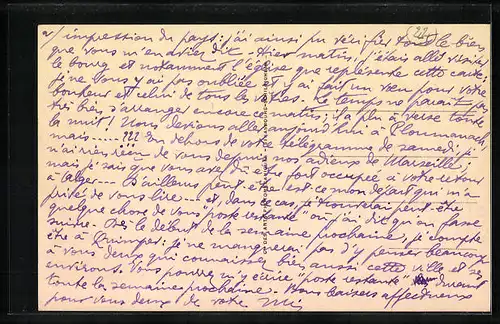 2/ impression du pays: j'ai ainsi pu vérifier tout le bien
que vous m'en aviez dit - Hier matin, j'étais allé visiter
le bourg et notamment l'église que représente cette carte;
je ne vous y ai pas oubliée et j'ai fait un vœu pour votre
bonheur et celui de tous les vôtres. Le temps ne paraît pas
très bien s'arranger encore ce matin; il a plu à verse toute
la nuit! Nous devions aller aujourd'hui à Ploumanach,
mais .... ??? En dehors de votre télégramme de samedi, je
n'ai rien de vous depuis nos adieux de Marseille;
mais je sais que vous avez dû être fort occupée à votre retour
à Alger... D'ailleurs peut-être est-ce mon départ qui m'a
privé de vous lire... et, dans ce cas, je trouverai peut-être
quelque chose de vous "poste restante" où j'ai dit qu'on fasse
suivre. Dès le début de la semaine prochaine, je compte
être à Quimper; je ne manquerai pas d'y penser beaucoup
à vous deux qui connaissez bien aussi cette ville et ses
environs. Vous pourrez m'y écrire "poste restante" durant
toute la semaine prochaine. Nous baisers affectueux
pour vous deux de votre
22